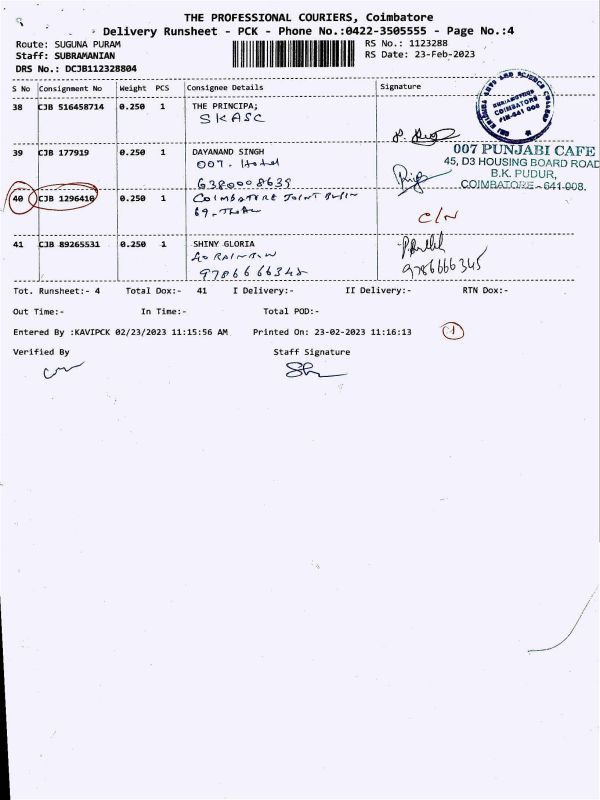 THE PROFESSIONAL COURIERS, Coimbatore
Delivery Runsheet - PCK - Phone No.:0422-3505555 - Page No.:4
Route: SUGUNA PURAM
RS No.: 1123288
Staff: SUBRAMANIAN
RS Date: 23-Feb-2023
DRS No.: DCJB112328804
S No Consignment No Weight PCS Consignee Details Signature
38 CJB 516458714 0.250 1 THE PRINCIPA;
SKASC
COIMBATORE
39 CJB 177919 0.250 1 DAYANAND SINGH
007. Hotel
6380008639
007 PUNJABI CAFE
45, D3 HOUSING BOARD ROAD
B.K. PUDUR,
COIMBATORE - 641 008.
40 CJB 1296410 0.250 1 COIMBATORE JOINT
69.
C/N
41 CJB 89265531 0.250 1 SHINY GLORIA
RAINBOW
9786666345
9786666345
Tot. Runsheet:- 4 Total Dox:- 41 I Delivery:- II Delivery:- RTN Dox:-
Out Time:- In Time:- Total POD:-
Entered By :KAVIPCK 02/23/2023 11:15:56 AM Printed On: 23-02-2023 11:16:13
Verified By Staff Signature